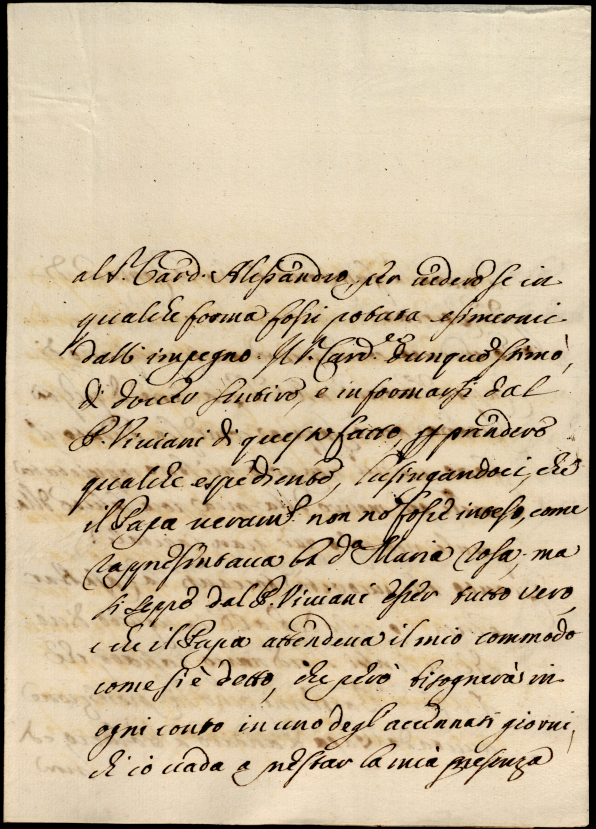 al Sr. Card. Alessandro, per vedere se in
qualche forma fossi potuta esimermi
dall' impegno. Il Sr. Card.le dunque stimò,
di dover sentire, e informarsi dal
P. Viviani di questo fatto, per prendere
qualche espediente, lusingandoci, che
il Papa veram.te non ne fosse inteso, come
rappresentava la d.a Maria Rosa; ma
si seppe dal P. Viviani esser tutto vero,
e che il Papa attendeva il mio commodo
come si è detto, che però bisognerà in
ogni conto in uno degl' accennati giorni,
ch' io vada a prestar la mia presenza